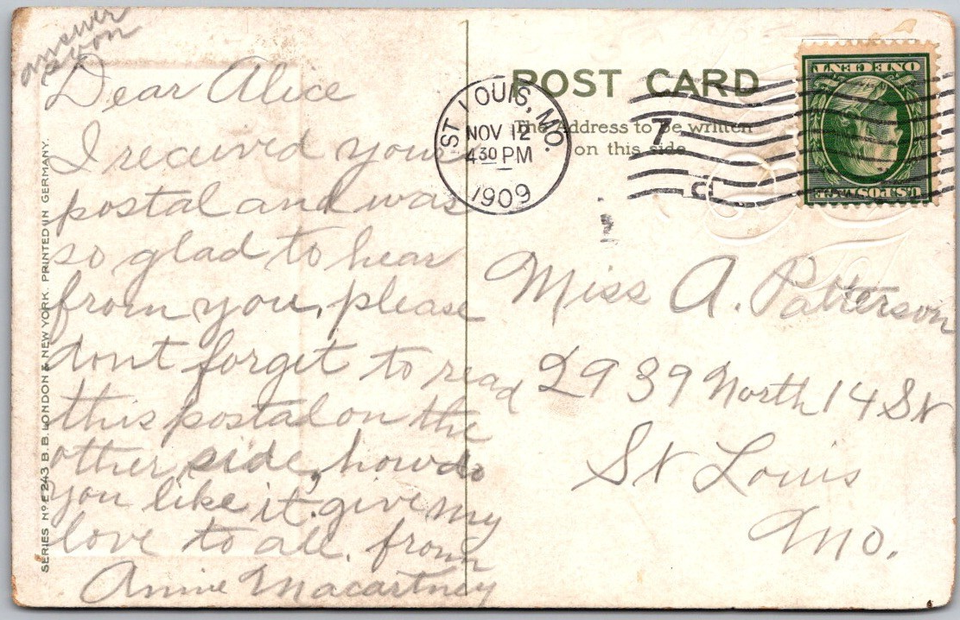 answer
soon
Dear Alice
I received your
postal and was
so glad to hear
from you, please
dont forget to read
this postal on the
other side, how do
you like it. give my
love to all. from
Annie Macartney
SERIES No E 243 B.B. LONDON & NEW YORK. PRINTED IN GERMANY.
POST CARD
The Address to be written
on this side
ST. LOUIS, MO.
NOV 12
430 PM
1909
7
C
ONE CENT
U.S. POSTAGE
Miss A. Patterson
2939 North 14 St
St Louis
Mo.